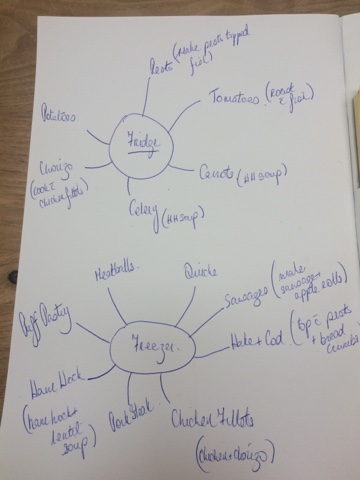 Pesto (Make pesto topped
fish)
Tomatoes (Roast
c fish)
Potatoes
Fridge
Chorizo
(cook c
chicken fillets)
Carrots (HH soup)
Celery (HH soup)
Meatballs
Quiche
Sausages (make
sausage +
apple rolls)
Puff Pastry
Freezer
Hake + Cod (top c pesto
+ bread
crumbs)
Ham Hock
(ham hock +
lentil
soup)
Steak
Chicken Fillets
(chicken + chorizo)